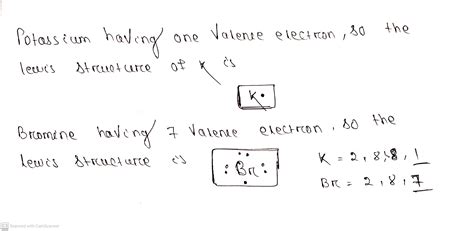 Potassium having one Valence electron, so the
lewis structure of K is
K•
Bromine having 7 Valence electron, so the
lewis structure is :Br:
K = 2, 8, 8, 1
Br = 2, 8, 7
Scanned with CamScanner